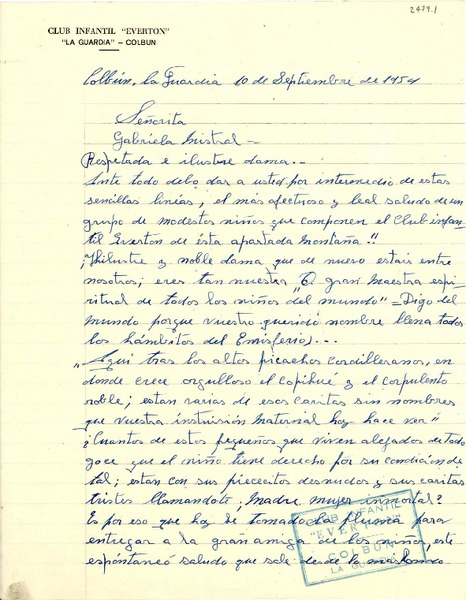 2479.1
CLUB INFANTIL "EVERTON"
"LA GUARDIA" – COLBUN
Colbún, la Guardia 10 de Septiembre de 1954
Señorita
Gabriela Mistral –
Respetada e ilustre dama. –
Ante todo debo dar a usted por intermedio de estas
sencillas linias, el más afectuoso y leal saludo de un
grupo de modestos niños que componen el Club infan-
til Everton de ésta apartada Montaña!!
¡Ihilustre y noble dama que de nuevo estais entre
nosotros; eres tan nuestra "O gran maestra espi-
ritual de todos los niños del mundo" – Digo del
mundo porque vuestro querido nombre llena todos
los hámbitos del Emisferio. – – –
"Aquí tras los altos picachos cordilleranos, en
donde crece orgulloso el copihué y el corpulento
roble; estan varias de esas caritas sin nombres
que vuestra instrusión maternal hoy hace ver"
¿Cuantos de estos pequeños que viven alejados de todo
goce que el niño tiene derecho por su condición de
tal; estan con sus piececitos desnudos y sus caritas
tristes llamandote ¡Madre mujer inmortal?
Es por eso que hoy de tomado la pluma para
entregar a la gran amiga de los niños, este
espóntaneó saludo que sale desde la más
CLUB INFANTIL
"EVERTON"
COLBUN
LA GUARDIA